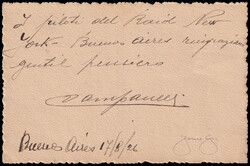 I piloti del Raid New
York - Buenos Aires ringraziano
gentil pensiero
Buenos Aires 17/2/26